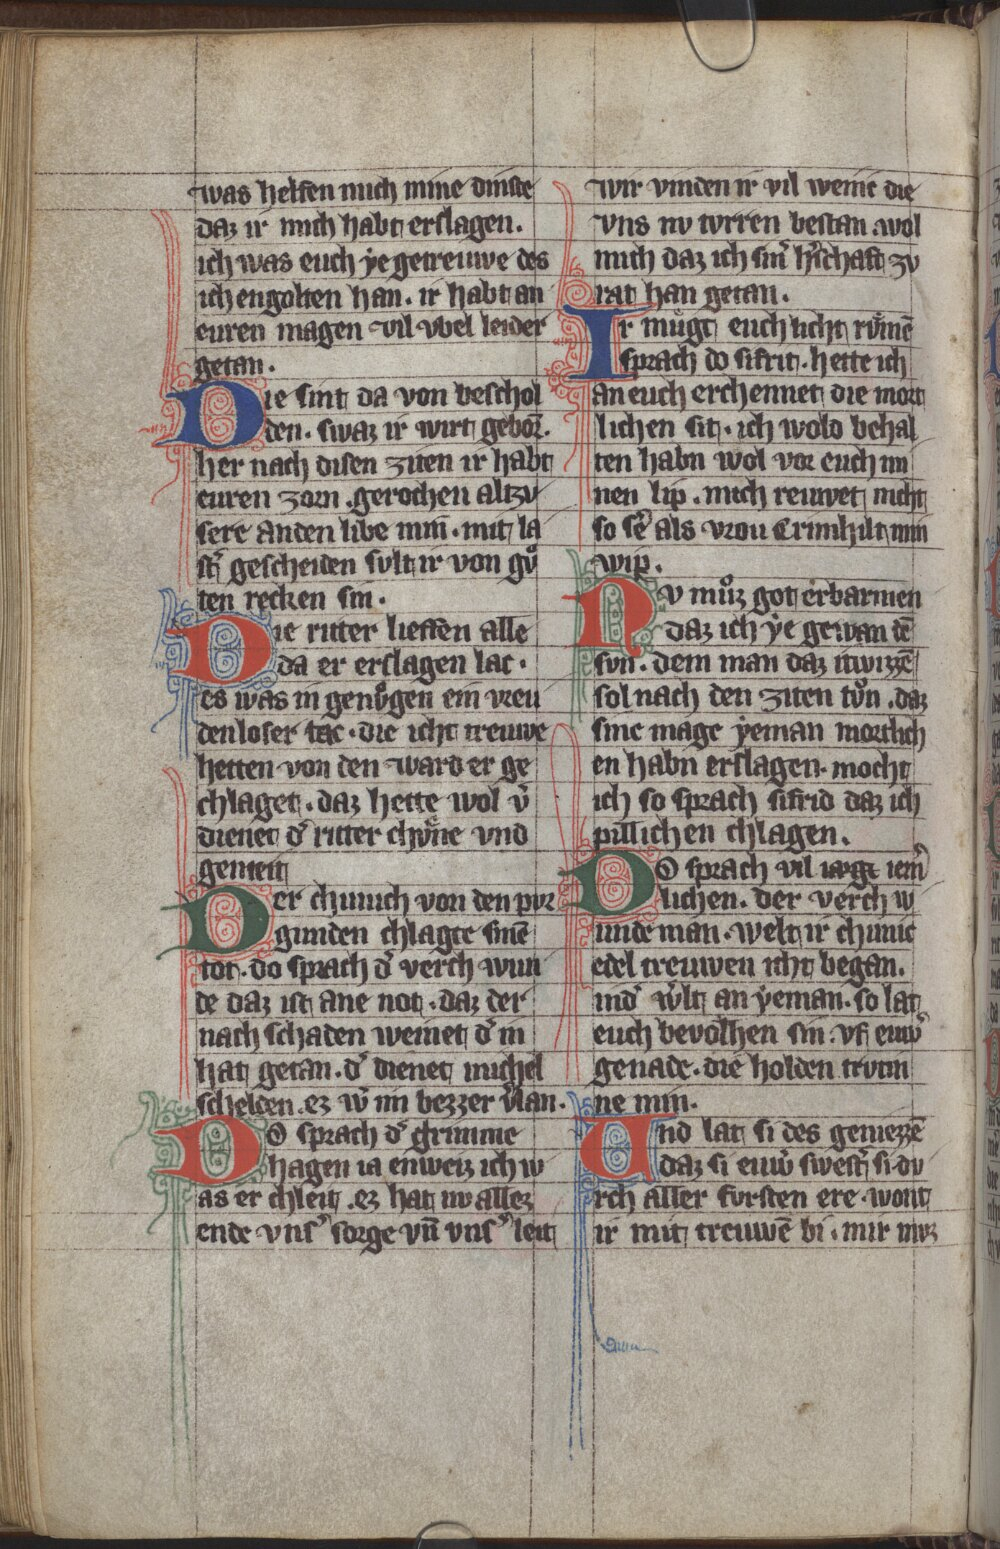 was helfen mich mine dinste
daz ir mich habt erslagen.
ich was euch ye getreuwe des
ich engolten han. ir habt an
euren magen vil vbel leider
getan.
Die sint da von beschol
den. swaz ir wirt geborn̄.
her nach disen ziten ir habt
euren zorn .gerochen altzv
sere anden libe min. mit la
st̄ gescheiden sult ir von gvͦ
ten recken sin.
Die ritter lieffen alle
da er erslagen lac.
es was in genvͦgen ein vreu
denloser tac. die icht treuwe
hetten von den ward er ge
chlaget. daz hette wol v̄
dienet d͛ ritter chvͤne vnd
gemeit
Der chunich von den pur
gunden chlagte sinē
tot. do sprach d͛ verch wun
de daz ist ane not. daz der
nach schaden weinet d͛ in
hat getan. d͛ dienet michel
schelden. ez w͛ im bezzer v͛lan.
Do sprach d͛ grimme
hagen ia enweiz ich w
as er chleit. ez hat nv allez
ende vns͛ sorge vn̄ vns͛ leit
wir vinden ir vil wenic die
vns nv turren bestan .wol
mich daz ich sin͛ h͛schaft zv
rat han getan.
Ir mvͤgt euch licht rvͤmē
sprach do sifrit. hette ich
an euch erchennet die mort
lichen sit. ich wold behal
ten habn wol vor euch mi
nen lip. mich reuwet nicht
so sē als vrou Crimhilt min
wip.
Nv mvͦz got erbarmen
daz ich ye gewan dē
svn. dem man daz itwizzē
sol nach den ziten tvͦn .daz
sine mage yeman mortlich
en habn erslagen. mocht
ich so sprach sifrid daz ich
pillichen chlagen.
Do sprach vil iaget iem͛
lichen. der verch w
unde man. welt ir chunic
edel treuwen icht began.
ind͛ w͛lt an yeman. so lat
euch bevolhen sin. vf euw͛
genade. die holden trvtin
ne min.
Und lat si des geniezzē
daz si euw͛ swest͛ si. dv
rch aller fursten ere. wont
ir mit treuwē bi. mir mvz